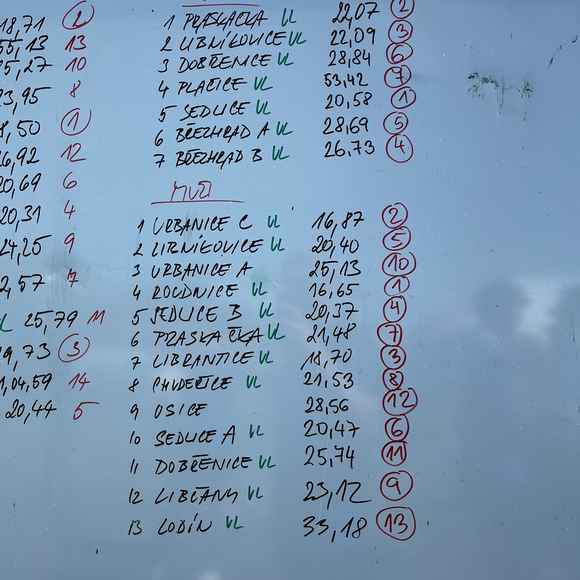 1 PRASKAČKA VL 22,07 2
2 LIBNÍKOVICE VL 22,09 3
3 DOBŘENICE VL 28,84 6
4 PLAČICE VL 53,42 7
5 SEDLICE VL 20,58 1
6 BŘEZHRAD A VL 28,69 5
7 BŘEZHRAD B VL 26,73 4
MUŽI
1 URBANICE C VL 16,87 2
2 LIBNÍKOVICE VL 20,40 5
3 URBANICE A 25,13 10
4 ROUDNICE VL 16,65 1
5 SEDLICE B VL 20,37 4
6 PRASKAČKA VL 21,48 7
7 LIBRANTICE VL 18,70 3
8 CHUDEŘICE VL 21,53 8
9 OSICE 28,56 12
10 SEDLICE A VL 20,47 6
11 DOBŘENICE VL 25,74 11
12 LIBČANY VL 23,12 9
13 LODÍN VL 33,18 13
18,71 2
55,13 13
25,27 10
23,95 8
8,50 1
26,92 12
20,69 6
20,31 4
24,25 9
2,57 7
VL 25,79 11
19,73 3
1,04,59 14
20,44 5